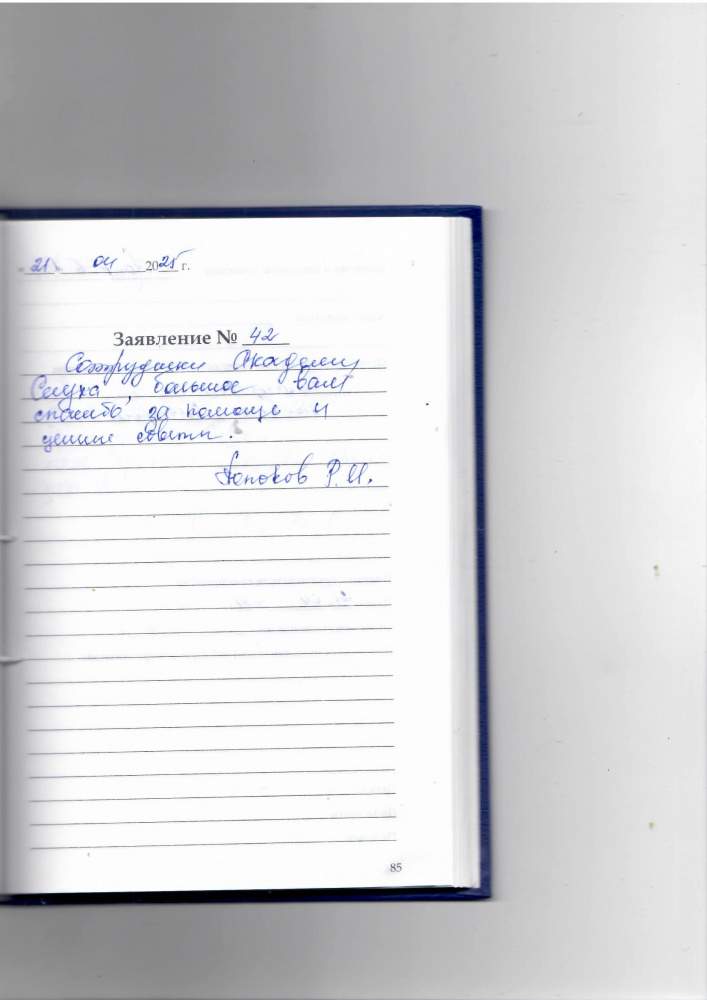 21 04 2025 г.
Заявление № 42
Сотрудники Академии
Слуха, большое вам
спасибо за помощь и
ценные советы.
Р.И.
85